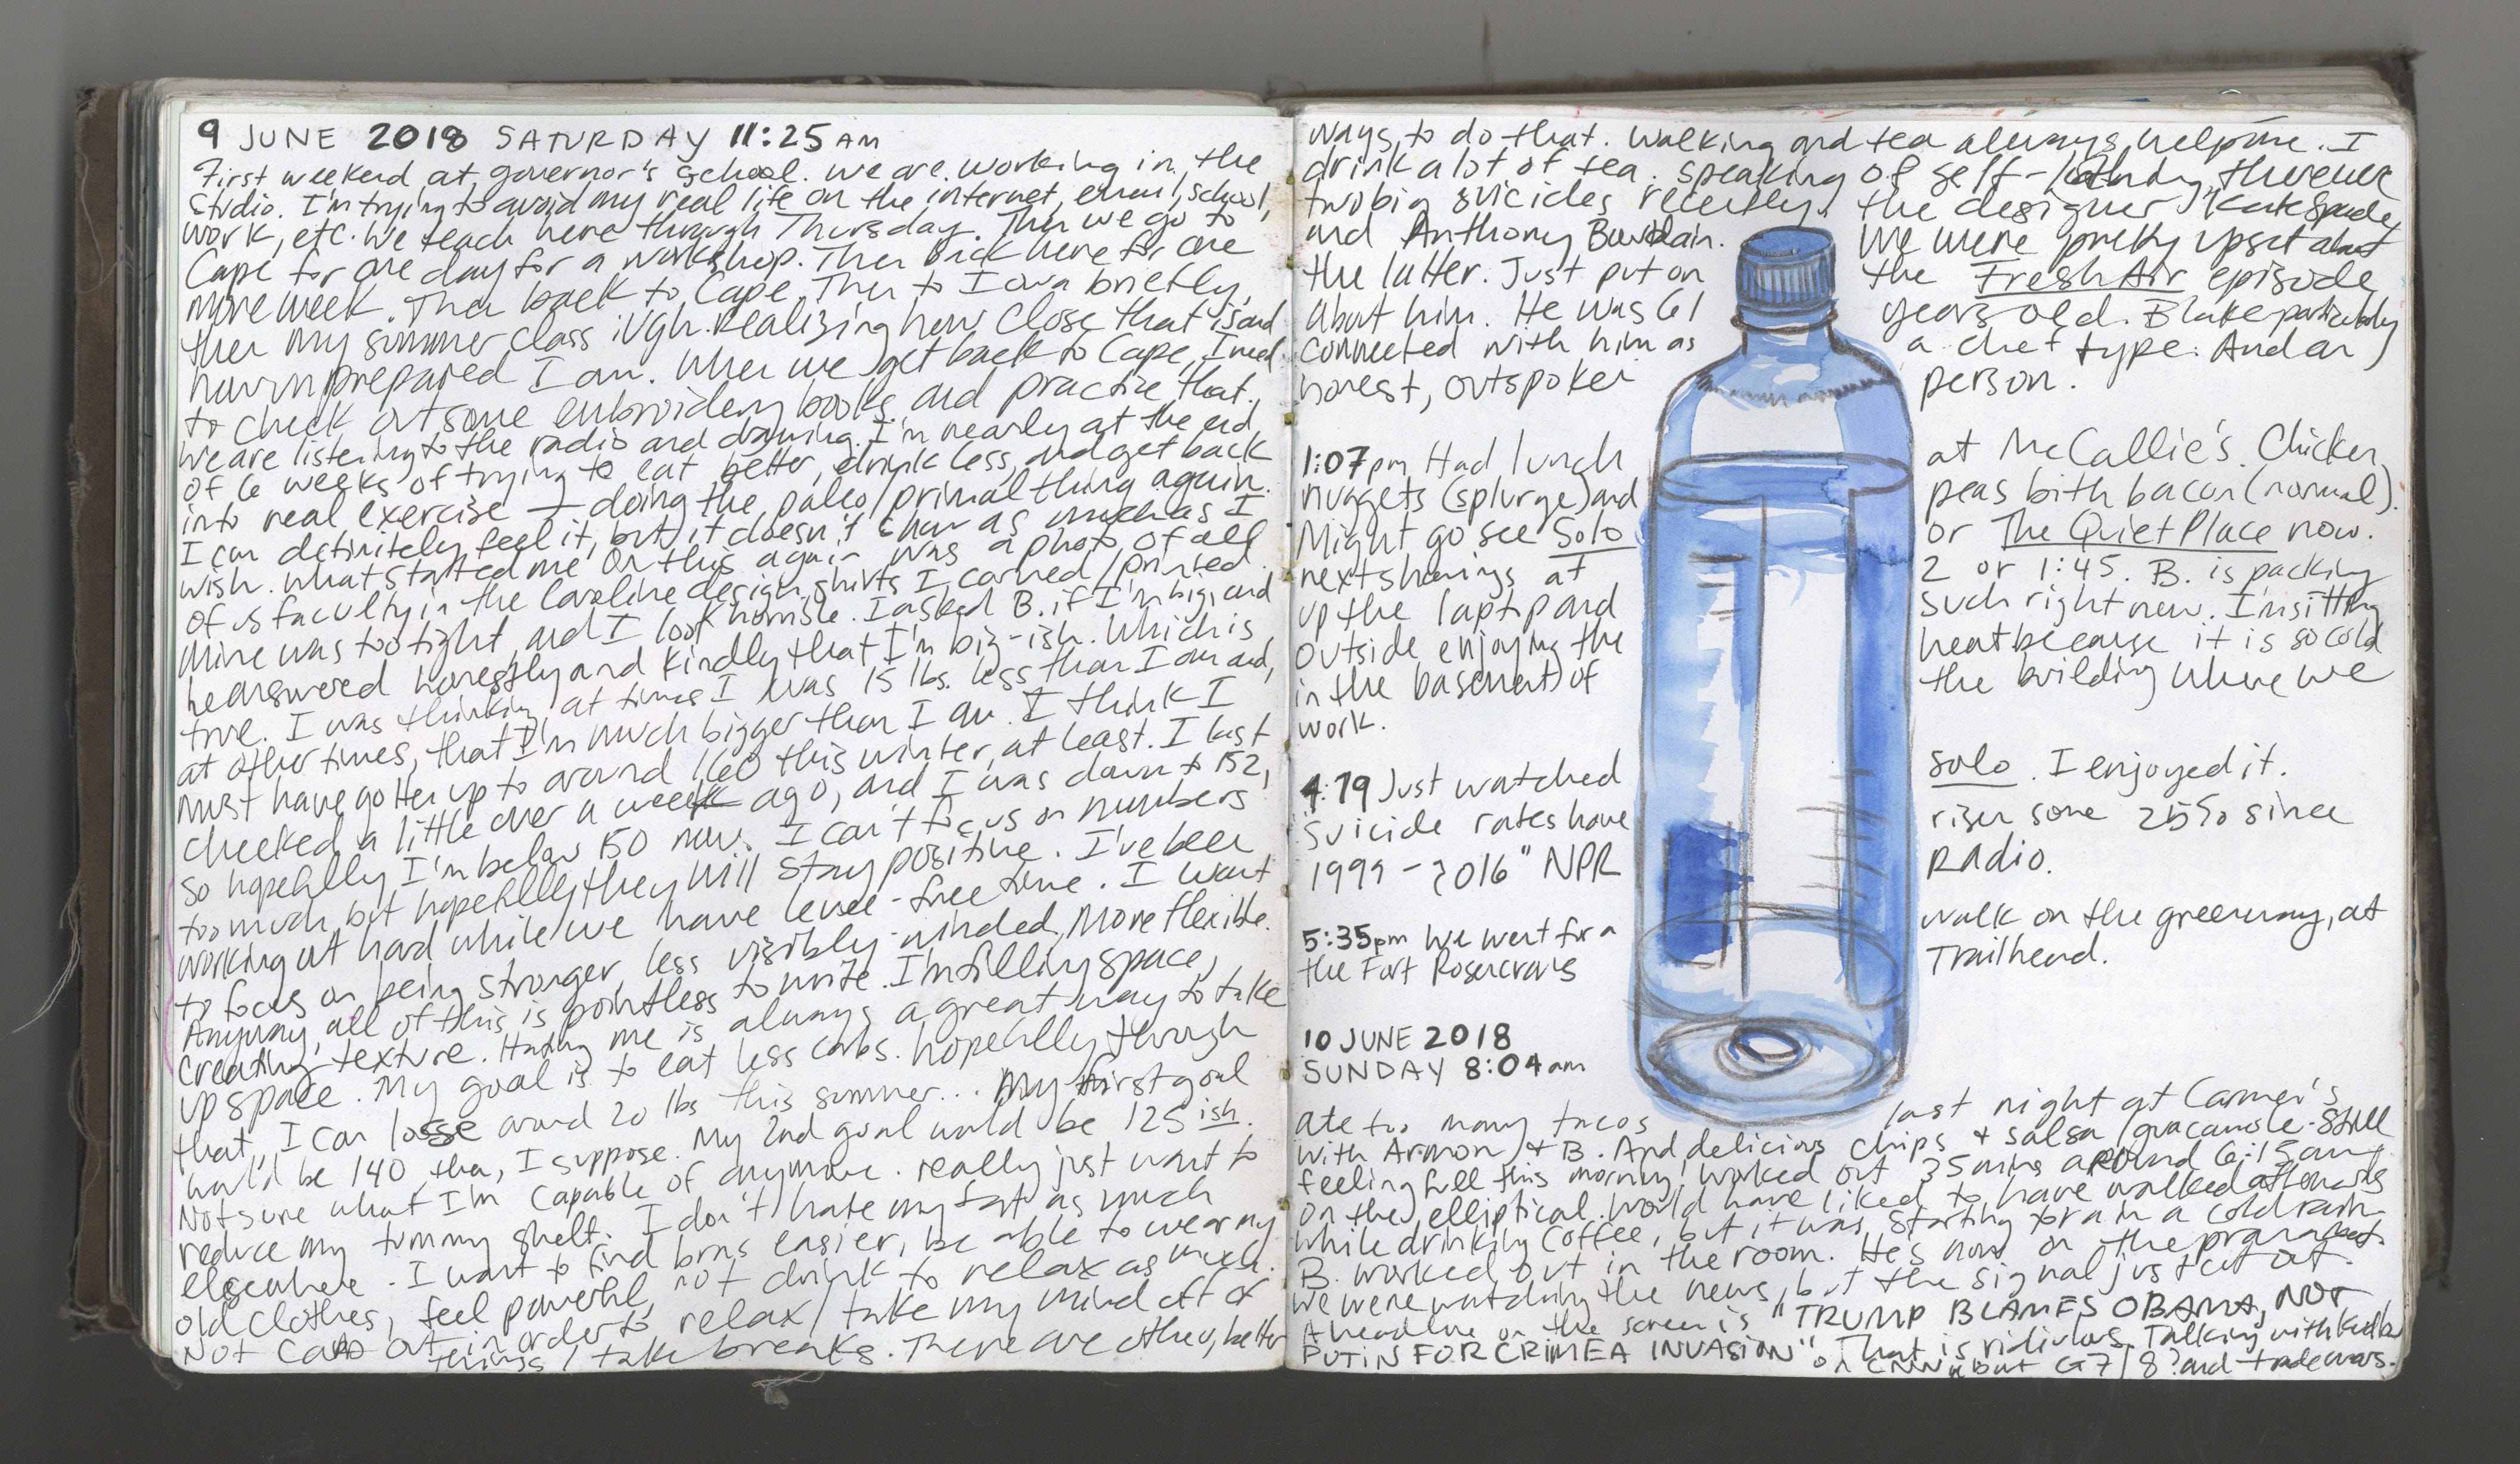 9 JUNE 2018 SATURDAY 11:25 AM
First weekend at governor's school. We are working in the
studio. I'm trying to avoid my real life on the internet, email, school,
work, etc. We teach here through Thursday. Then we go to
Cape for one day for a workshop. Then back here for one
more week. Then back to Cape. Then to Iowa briefly,
then my summer class :Ugh. Realizing how close that is and
how unprepared I am. When we get back to Cape, I need
to check out some embroidery books and practice that.
We are listening to the radio and drawing. I'm nearly at the end
of 6 weeks of trying to eat better, drink less, and get back
into real exercise — doing the paleo/primal thing again.
I can definitely feel it, but it doesn't show as much as I
wish. What started me on this again was a photo of all
of us faculty in the design shirts I carved/printed.
Mine was too tight, and I look horrible. I asked B. if I'm big, and
he answered honestly and kindly that I'm big-ish. Which is
true. I was thinking at times I was 15 lbs. less than I am and,
at other times, that I'm much bigger than I am. I think I
must have gotten up to around 160 this winter, at least. I last
checked a little over a week ago, and I was down to 152,
so hopefully I'm below 150 now. I can't focus on numbers
too much but hopefully they will stay positive. I've been
working out hard while we have free time. I want
to focus on being stronger, less visibly winded, more flexible.
Anyway, all of this is pointless to write. I'm filling space,
creating texture. Hating me is always a great way to take
up space. My goal is to eat less carbs. hopefully through
that, I can losse around 20 lbs this summer... My first goal
would be 140 then, I suppose. My 2nd goal would be 125 ish.
Not sure what I'm capable of anymore. really just want to
reduce my tummy shelf. I don't hate my fat as much
elsewhere. I want to find bras easier, be able to wear my
old clothes, feel powerful, not drink to relax as much.
Not out in order to relax/take my mind off of
things/take breaks. There are other, better
ways to do that. Walking and tea always help me. I
drink a lot of tea. Speaking of self-loathing, there were
two big suicides recently, the designer, Kate Spade,
and Anthony Bourdain. We were pretty upset about
the latter. Just put on the Fresh Air episode
about him. He was 61 years old. Blake particularly
connected with him as a chef type. And an
honest, outspoken person.
1:07pm Had lunch at McCallie's. Chicken
nuggets (splurge) and peas bith bacon (normal).
Might go see Solo or The Quiet Place now.
next showings at 2 or 1:45. B. is packing
up the laptop and such right now. I'm sitting
outside enjoying the heat because it is so cold
in the basement of the building where we
work.
4:19 Just watched Solo. I enjoyed it.
"Suicide rates have risen some 25% since
1999 - 2016" NPR Radio.
5:35pm We went for a walk on the greenway, at
the Fort Rosecrans Trailhead.
10 JUNE 2018
SUNDAY 8:04am
ate too many tacos last night at Carmen's
with Armon & B. And delicious chips & salsa/guacamole. Still
feeling full this morning. Worked out 35 mins around 6:15am
on the elliptical. Would have liked to have walked afterwards
while drinking coffee, but it was starting to rain a cold rain.
B. worked out in the room. He's now on the
We were watching the news, but the signal just cut out.
A headline on the screen is "TRUMP BLAMES OBAMA, NOT
PUTIN FOR CRIMEA INVASION". That is ridiculous. Talking with
on CNN about G7/8? and trade wars.